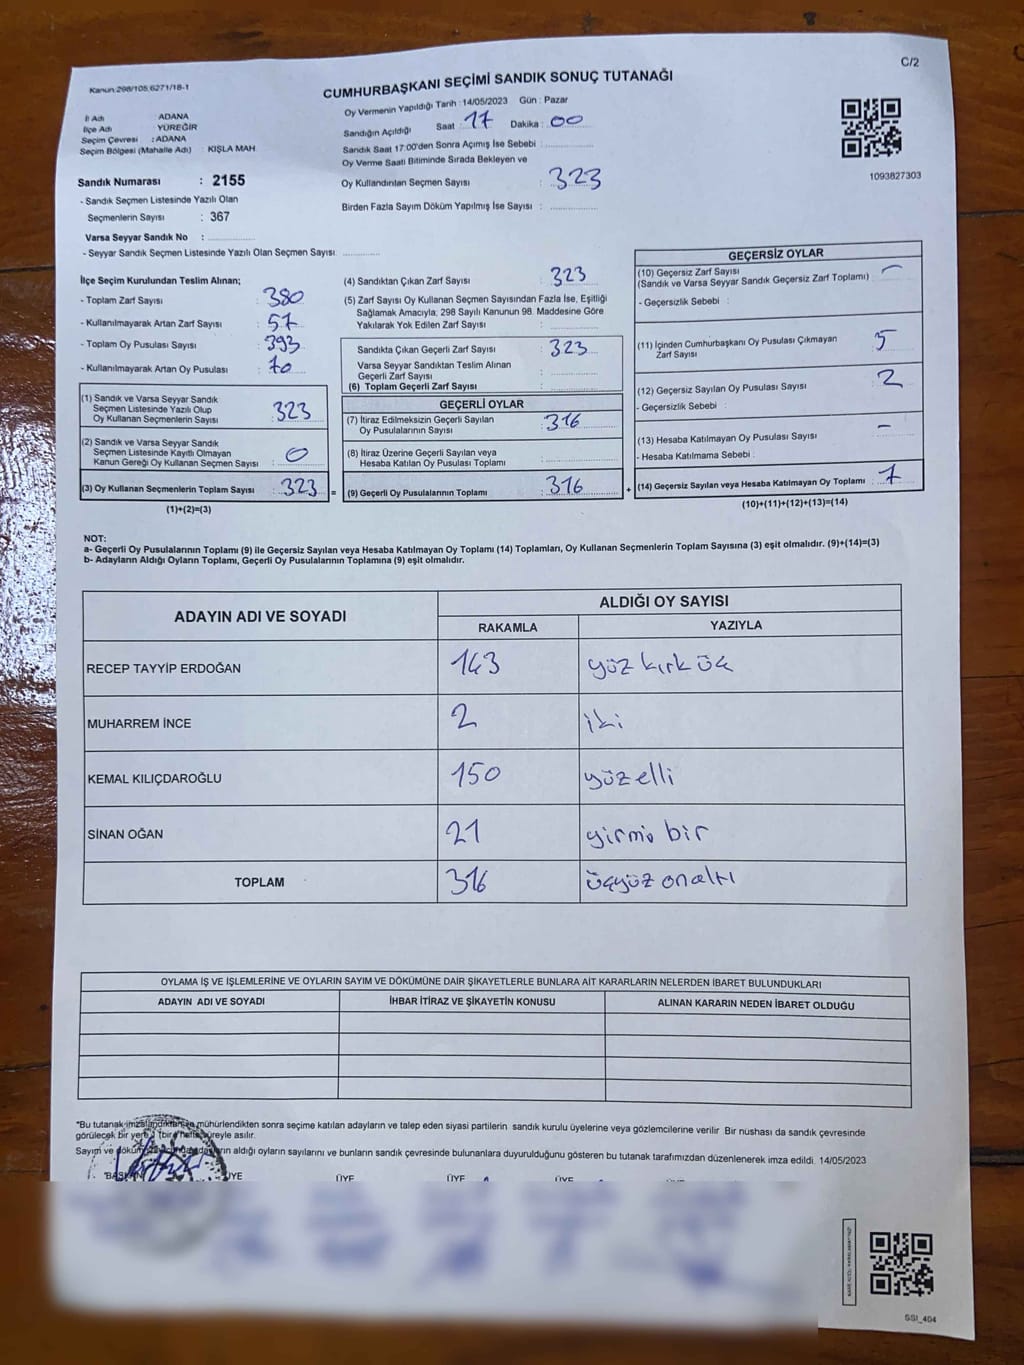 C/2
Kanun:298/105,6271/18-1
CUMHURBAŞKANI SEÇİMİ SANDIK SONUÇ TUTANAĞI
Oy Vermenin Yapıldığı Tarih : 14/05/2023 Gün : Pazar
İl Adı ADANA
İlçe Adı YÜREĞİR
Seçim Çevresi : ADANA
Seçim Bölgesi (Mahalle Adı) : KIŞLA MAH
Sandığın Açıldığı Saat : 17 Dakika : 00
Sandık Saat 17:00'den Sonra Açılmış İse Sebebi :
Oy Verme Saati Bitiminde Sırada Bekleyen ve
Oy Kullandırılan Seçmen Sayısı : 323
Birden Fazla Sayım Döküm Yapılmış İse Sayısı :
1093827303
Sandık Numarası : 2155
- Sandık Seçmen Listesinde Yazılı Olan
Seçmenlerin Sayısı : 367
Varsa Seyyar Sandık No :
- Seyyar Sandık Seçmen Listesinde Yazılı Olan Seçmen Sayısı
İlçe Seçim Kurulundan Teslim Alınan;
- Toplam Zarf Sayısı : 380
- Kullanılmayarak Artan Zarf Sayısı : 57
- Toplam Oy Pusulası Sayısı : 393
- Kullanılmayarak Artan Oy Pusulası : 70
(1) Sandık ve Varsa Seyyar Sandık
Seçmen Listesinde Yazılı Olup
Oy Kullanan Seçmenlerin Sayısı : 323
(2) Sandık ve Varsa Seyyar Sandık
Seçmen Listesinde Kayıtlı Olmayan
Kanun Gereği Oy Kullanan Seçmen Sayısı : 0
(3) Oy Kullanan Seçmenlerin Toplam Sayısı : 323 =
(1)+(2)=(3)
(4) Sandıktan Çıkan Zarf Sayısı : 323
(5) Zarf Sayısı Oy Kullanan Seçmen Sayısından Fazla İse, Eşitliği
Sağlamak Amacıyla; 298 Sayılı Kanunun 98. Maddesine Göre
Yakılarak Yok Edilen Zarf Sayısı :
Sandıkta Çıkan Geçerli Zarf Sayısı : 323
Varsa Seyyar Sandıktan Teslim Alınan
Geçerli Zarf Sayısı :
(6) Toplam Geçerli Zarf Sayısı :
GEÇERLİ OYLAR
(7) İtiraz Edilmeksizin Geçerli Sayılan
Oy Pusulalarının Sayısı : 316
(8) İtiraz Üzerine Geçerli Sayılan veya
Hesaba Katılan Oy Pusulası Toplamı :
(9) Geçerli Oy Pusulalarının Toplamı : 316 +
GEÇERSİZ OYLAR
(10) Geçersiz Zarf Sayısı : -
(Sandık ve Varsa Seyyar Sandık Geçersiz Zarf Toplamı)
- Geçersizlik Sebebi :
(11) İçinden Cumhurbaşkanı Oy Pusulası Çıkmayan
Zarf Sayısı : 5
(12) Geçersiz Sayılan Oy Pusulası Sayısı : 2
- Geçersizlik Sebebi :
(13) Hesaba Katılmayan Oy Pusulası Sayısı : -
- Hesaba Katılmama Sebebi :
(14) Geçersiz Sayılan veya Hesaba Katılmayan Oy Toplamı : 7
(10)+(11)+(12)+(13)=(14)
NOT:
a- Geçerli Oy Pusulalarının Toplamı (9) ile Geçersiz Sayılan veya Hesaba Katılmayan Oy Toplamı (14) Toplamları, Oy Kullanan Seçmenlerin Toplam Sayısına (3) eşit olmalıdır. (9)+(14)=(3)
b- Adayların Aldığı Oyların Toplamı, Geçerli Oy Pusulalarının Toplamına (9) eşit olmalıdır.
ADAYIN ADI VE SOYADI ALDIĞI OY SAYISI
RAKAMLA YAZIYLA
RECEP TAYYİP ERDOĞAN 143 yüz kırk üç
MUHARREM İNCE 2 iki
KEMAL KILIÇDAROĞLU 150 yüz elli
SİNAN OĞAN 21 yirmi bir
TOPLAM 316 üçyüz onaltı
OYLAMA İŞ VE İŞLEMLERİNE VE OYLARIN SAYIM VE DÖKÜMÜNE DAİR ŞİKAYETLERLE BUNLARA AİT KARARLARIN NELERDEN İBARET BULUNDUKLARI
ADAYIN ADI VE SOYADI İHBAR İTİRAZ VE ŞİKAYETİN KONUSU ALINAN KARARIN NEDEN İBARET OLDUĞU
*Bu tutanak imzalandıktan ve mühürlendikten sonra seçime katılan adayların ve talep eden siyasi partilerin sandık kurulu üyelerine veya gözlemcilerine verilir. Bir nüshası da sandık çevresinde
görülecek bir yere 1 (bir) hafta süreyle asılır.
Sayım ve döküm adayların aldığı oyların sayılarını ve bunların sandık çevresinde bulunanlara duyurulduğunu gösteren bu tutanak tarafımızdan düzenlenerek imza edildi. 14/05/2023
BAŞKAN ÜYE ÜYE ÜYE ÜYE
SSI_404